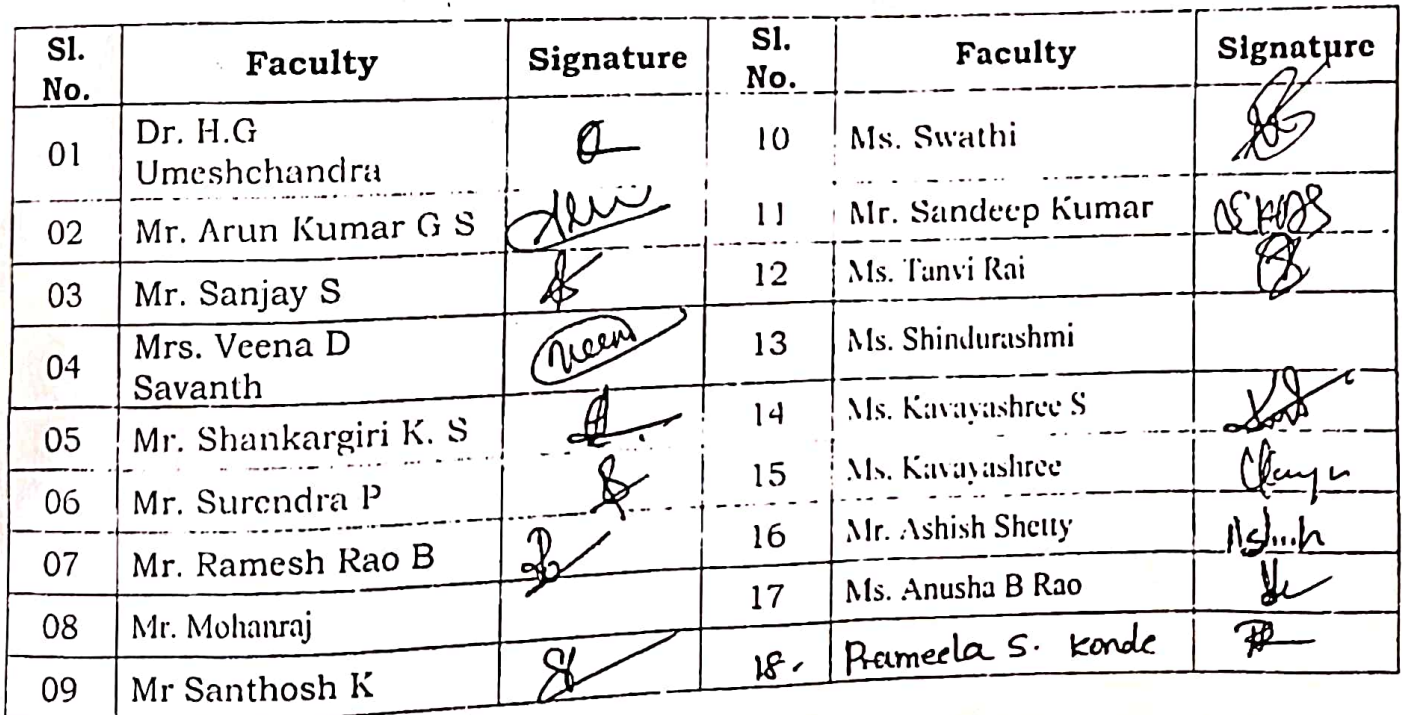 Sl. No. Faculty Signature Sl. No. Faculty Signature
01 Dr. H.G Umeshchandra 10 Ms. Swathi
02 Mr. Arun Kumar G S 11 Mr. Sandeep Kumar
03 Mr. Sanjay S 12 Ms. Tanvi Rai
04 Mrs. Veena D Savanth Veena 13 Ms. Shindurashmi
05 Mr. Shankargiri K. S 14 Ms. Kavayashree S
06 Mr. Surendra P 15 Ms. Kavayashree
07 Mr. Ramesh Rao B 16 Mr. Ashish Shetty
08 Mr. Mohanraj 17 Ms. Anusha B Rao
09 Mr Santhosh K 18. Prameela S. Konde